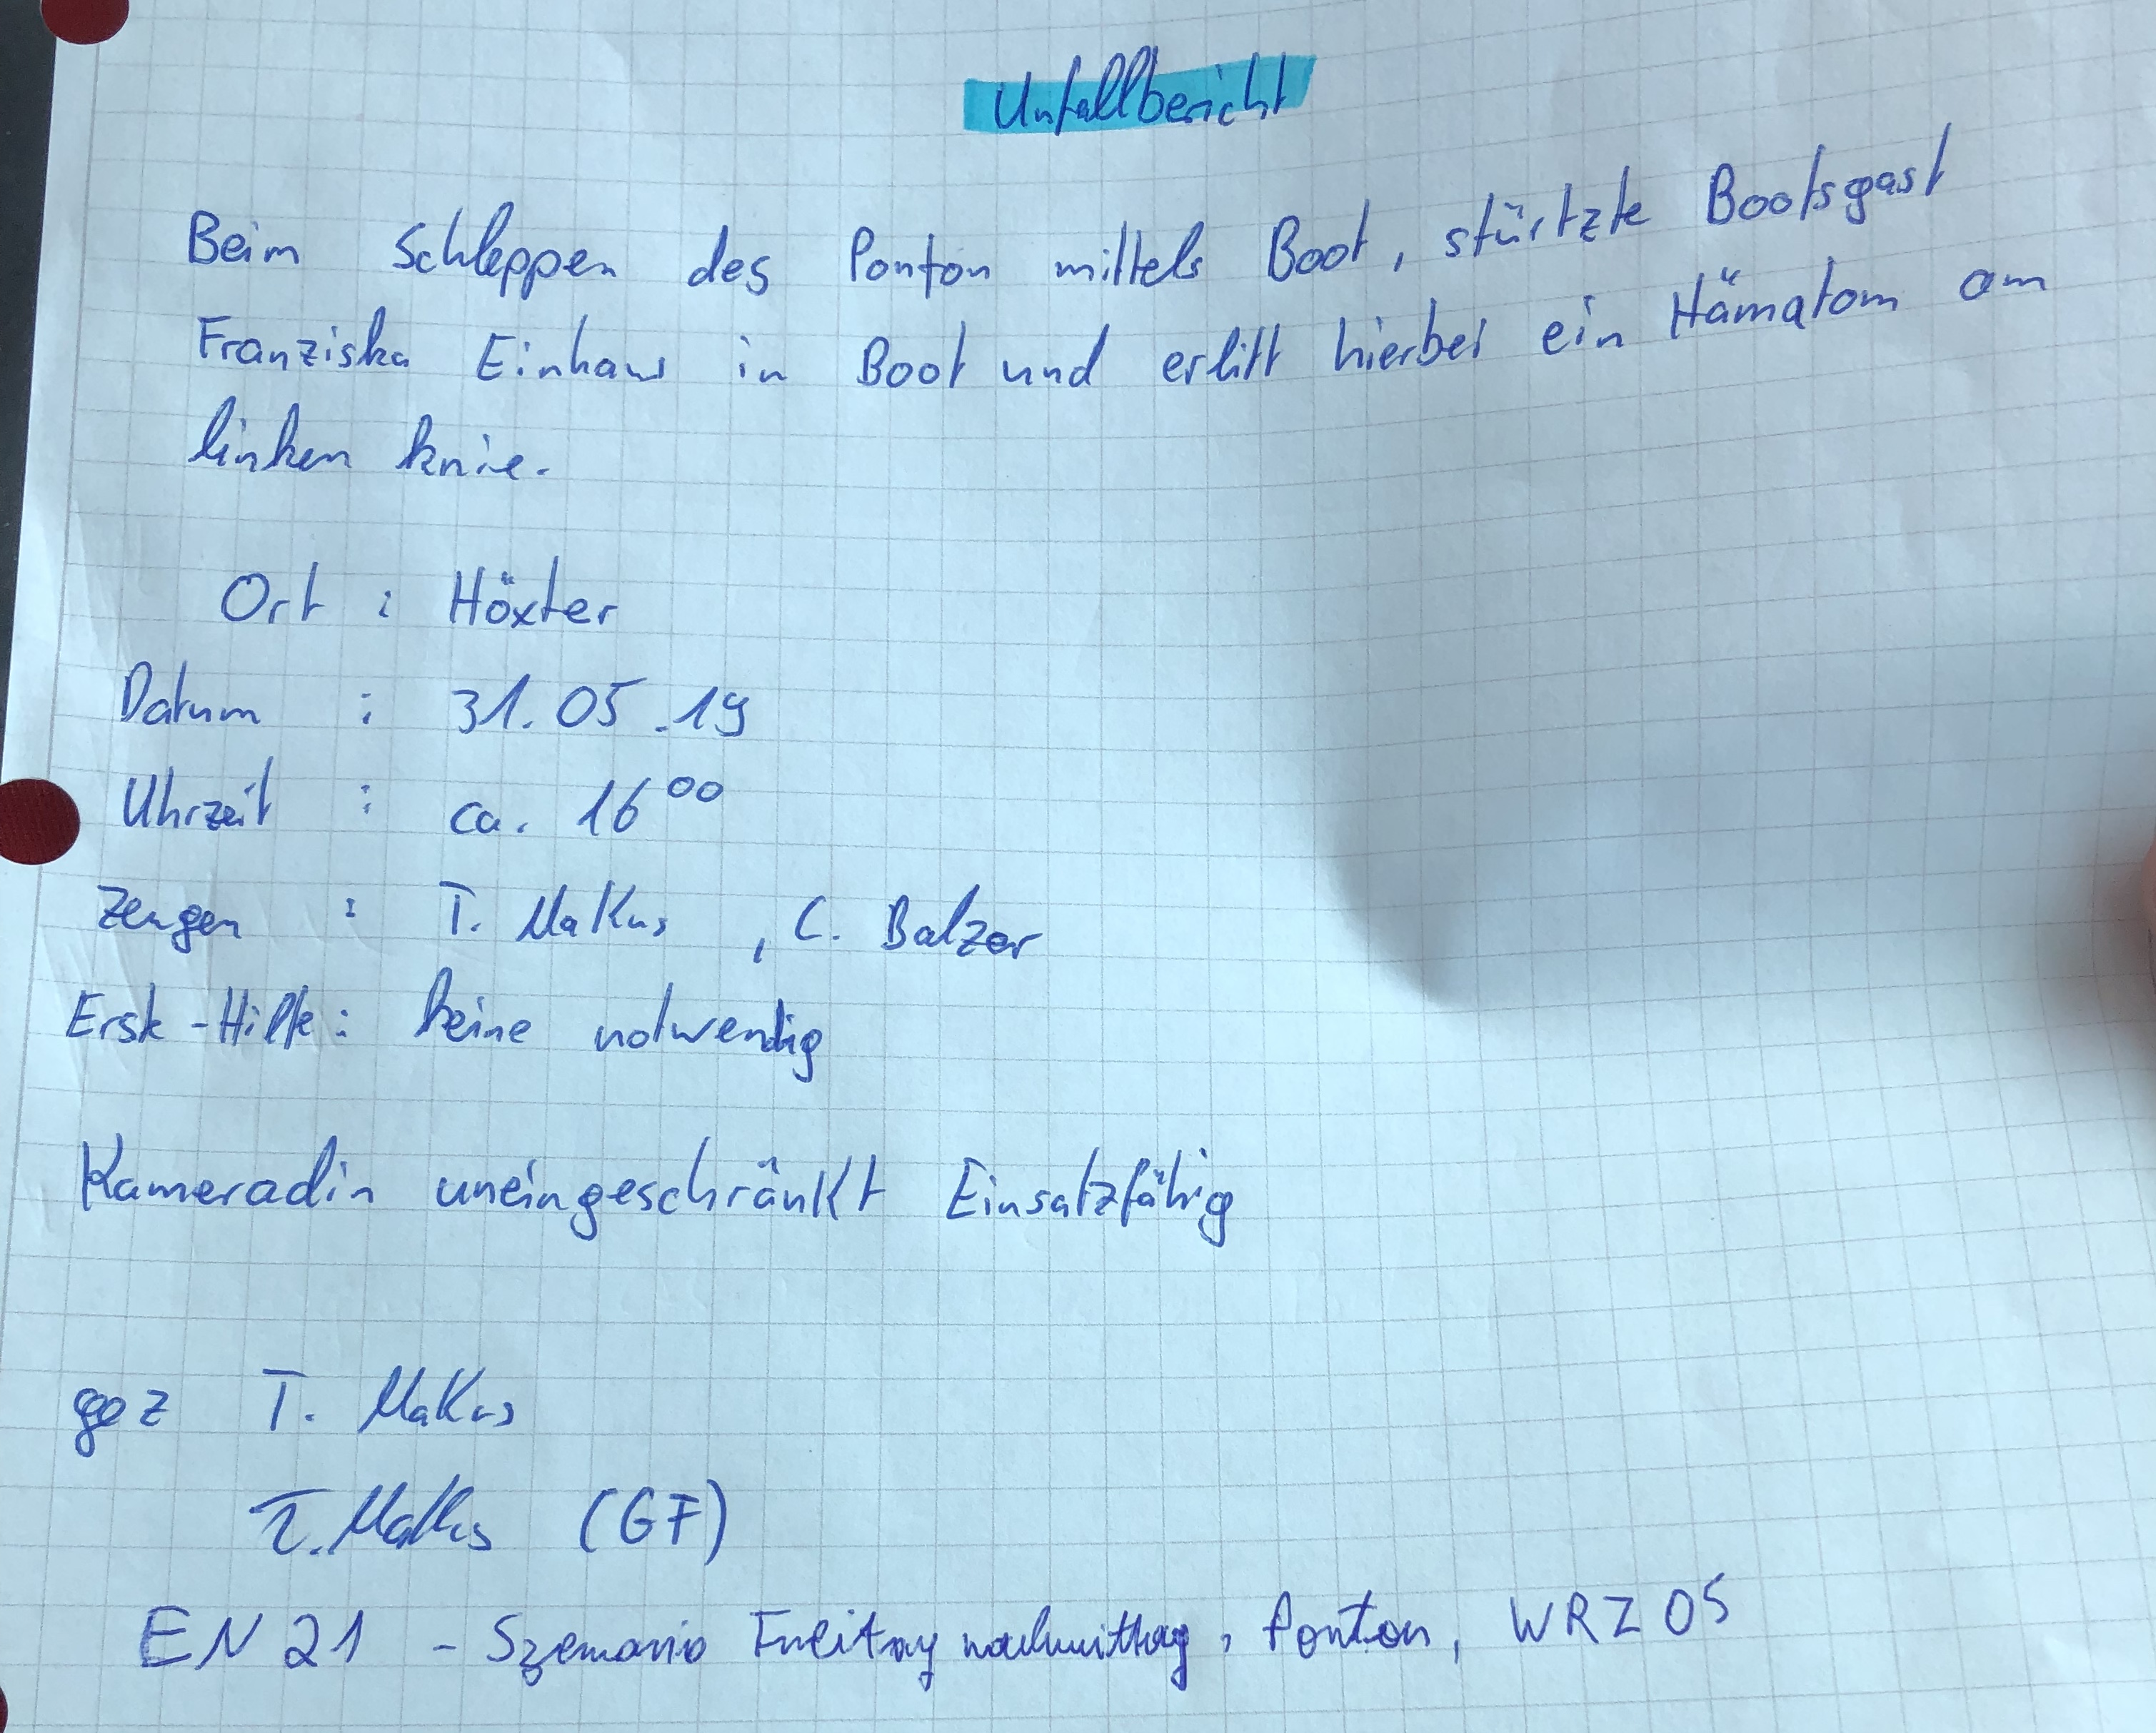 Unfallbericht
Beim Schleppen des Ponton mittels Boot, stürtzte Bootsgast
Franziska Einhaus in Boot und erlitt hierbei ein Hämatom am
linken Knie.
Ort : Höxter
Datum : 31.05.19
Uhrzeit : ca. 16⁰⁰
Zeugen : T. Makus , C. Balzer
Erste-Hilfe: keine notwendig
Kameradin uneingeschränkt Einsatzfähig
gez T. Makus
T. Makus (GF)
EN 21 - Szenario Freitag nachmittag, Ponton, WRZ 05